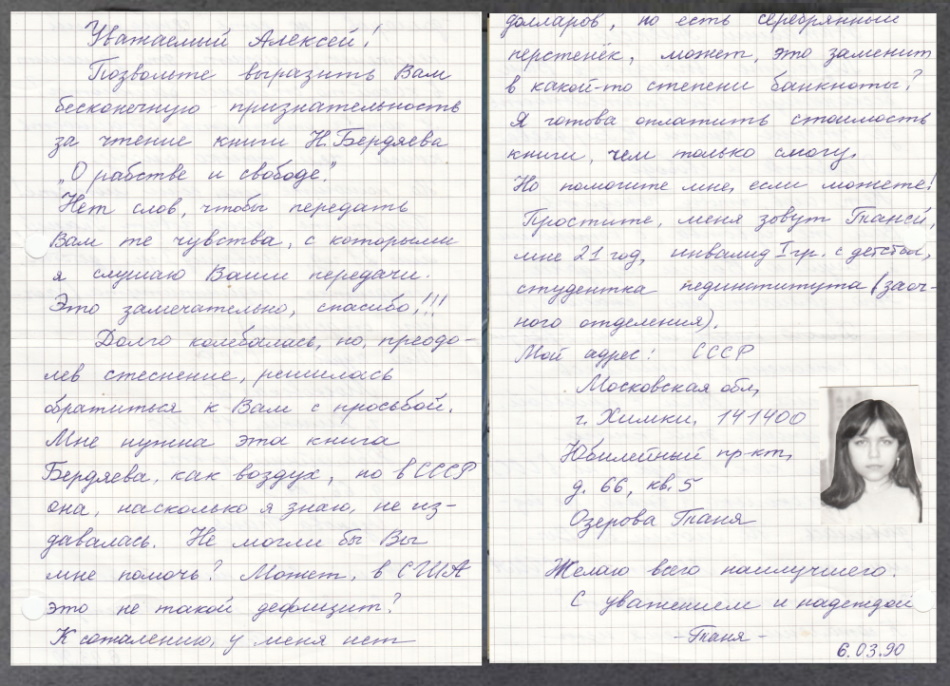 Уважаемый Алексей!
Позвольте выразить Вам
бесконечную признательность
за чтение книги Н. Бердяева
„О рабстве и свободе".
Нет слов, чтобы передать
Вам те чувства, с которыми
я слушаю Ваши передачи.
Это замечательно, спасибо!!!
Долго колебалась, но, преодо-
лев стеснение, решилась
обратиться к Вам с просьбой.
Мне нужна эта книга
Бердяева, как воздух, но в СССР
она, насколько я знаю, не из-
давалась. Не могли бы Вы
мне помочь? Может, в США
это не такой дефицит?
К сожалению, у меня нет
долларов, но есть серебрянный
перстенёк, может, это заменит
в какой-то степени банкноты?
Я готова оплатить стоимость
книги, чем только смогу.
Но помогите мне, если можете!
Простите, меня зовут Таней,
мне 21 год, инвалид I гр. с детства,
студентка пединститута (заоч-
ного отделения).
Мой адрес: СССР
Московская обл,
г. Химки, 141400
Юбилейный пр-кт,
д. 66, кв. 5
Озерова Таня
Желаю всего наилучшего.
С уважением и надеждой
-Таня-
6.03.90